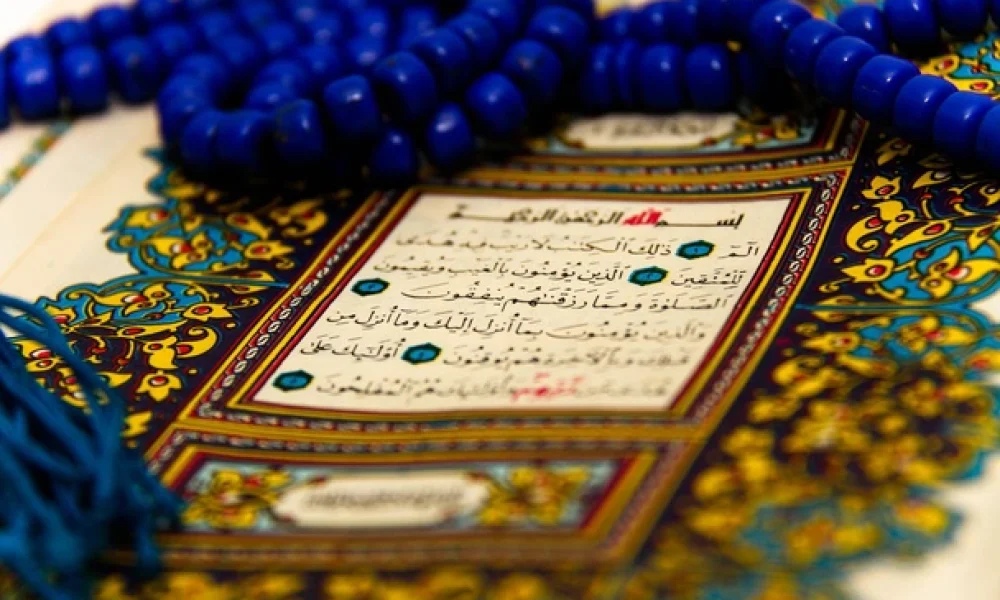 بِسْمِ اللهِ الرَّحْمٰنِ الرَّحِيمِ
الٓمٓ ذٰلِكَ الْكِتٰبُ لَا رَيْبَ فِيهِ هُدًى
لِلْمُتَّقِينَ الَّذِينَ يُؤْمِنُونَ بِالْغَيْبِ وَيُقِيمُونَ
الصَّلٰوةَ وَمِمَّا رَزَقْنٰهُمْ يُنْفِقُونَ
وَالَّذِينَ يُؤْمِنُونَ بِمَا أُنْزِلَ إِلَيْكَ وَمَا أُنْزِلَ مِنْ
قَبْلِكَ وَبِالْاٰخِرَةِ هُمْ يُوقِنُونَ أُولٰئِكَ عَلٰى
رَبِّهِمْ وَأُولٰئِكَ هُمُ الْمُفْلِحُونَ